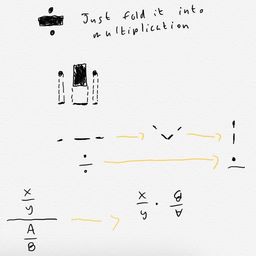 Just fold it into
multiplication
÷
x
y
A
B
x
y
·
B
A